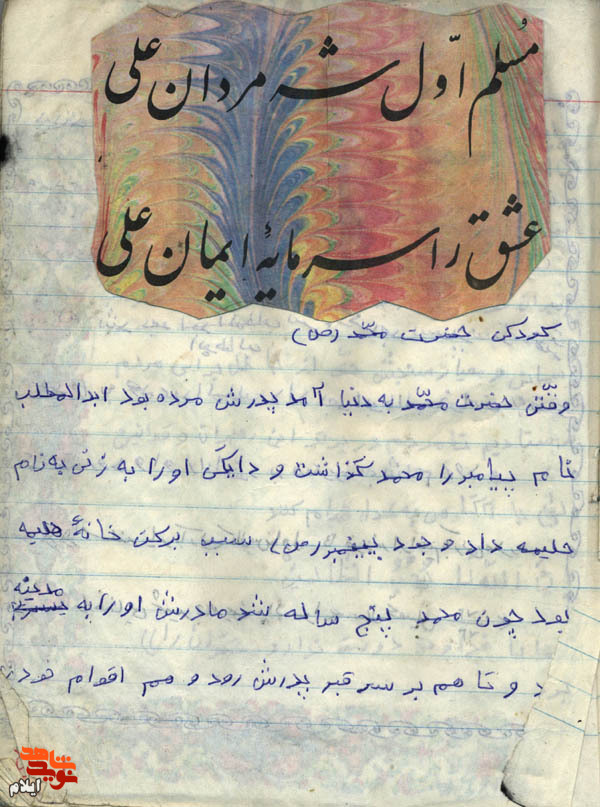 مُسلم اوّل شه مردان علی
عشق را سرمایهٔ ایمان علی
کودکی حضرت محمّد (ص)
وقتی حضرت محمّد به دنیا آمد پدرش مرده بود ابدالمطلب
نام پیامبر را محمد گذاشت و دایگی او را به زنی به نام
حلیمه داد وجود پیغمبر (ص) سبب برکت خانهٔ هلیمه
بود چون محمد پنج ساله شد مادرش او را به مدینه
د و تا هم بر سر قبر پدرش رود و هم اقوام خود
نوید شاهد
ایلام